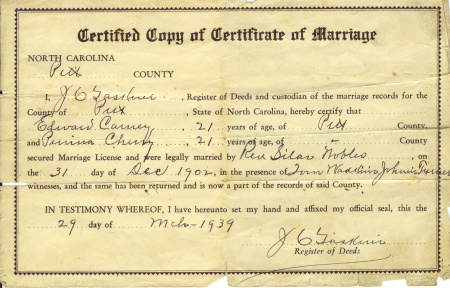 Certified Copy of Certificate of Marriage
NORTH CAROLINA
Pitt COUNTY
I, J C Gaskins, Register of Deeds and custodian of the marriage records for the
County of Pitt, State of North Carolina, hereby certify that
Edward Carney, 21 years of age, of Pitt County
and 21 years of age, of County
secured Marriage License and were legally married by Rev Silas Nobles, on
the 31 day of Dec 1902, in the presence of
witnesses, and the same has been returned and is now a part of the records of said County.
IN TESTIMONY WHEREOF, I have hereunto set my hand and affixed my official seal, this the
29 day of Mch-1939
J C Gaskins
Register of Deeds